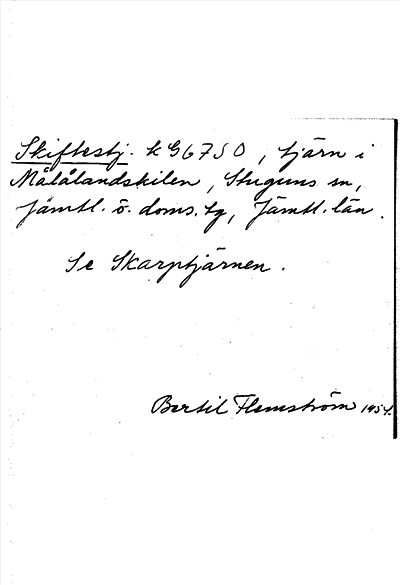 Skiftestj. k G6750, tjärn i
Målålandskilen, Stuguns sn,
Jämtl. ö. doms. tg, Jämtl. län.
Se Skarptjärnen.
Bertil Flemström 1954.